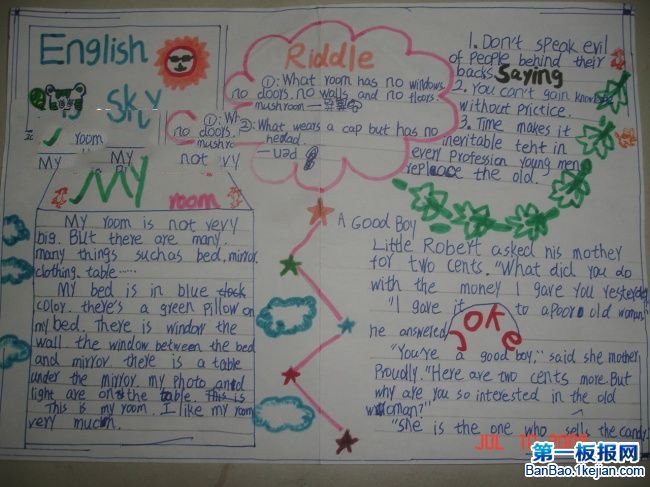 English
Sky
Riddle
①: What room has no windows.
no doors. no walls and no floors.
mushroom —
②: What wears a cap but has no
head.
— pen
Saying
1. Don't speak evil
of people behind their
backs.
2. You can't gain
without prictice.
3. Time makes it
ineritable teht in
every Profession young men
the old.
①: Wh
no doors.
mushr
room
MY
MY
not very
MY
room
My room is not very
big. But there are many
many things suchas bed, mirror
clothing table ……
My bed is in blue
color. there's a green Pillow on
my bed. There is window the
wall the window between the bed
and mirror there is a table
under the mirror. my photo and
light are on the table. This is
This is my room. I like my room
very much.
A Good Boy
Little Robert asked his mother
for two cents. "What did you do
with the money I gave you yesterday
"I gave it to a poor old woman"
he answered
Joke
"You're a good boy," said she mother
Proudly. "Here are two cents more. But
why are you so interested in the old
woman?"
"She is the one who sells the candy.
JUL
第一板报网
BanBao.1kejian.com